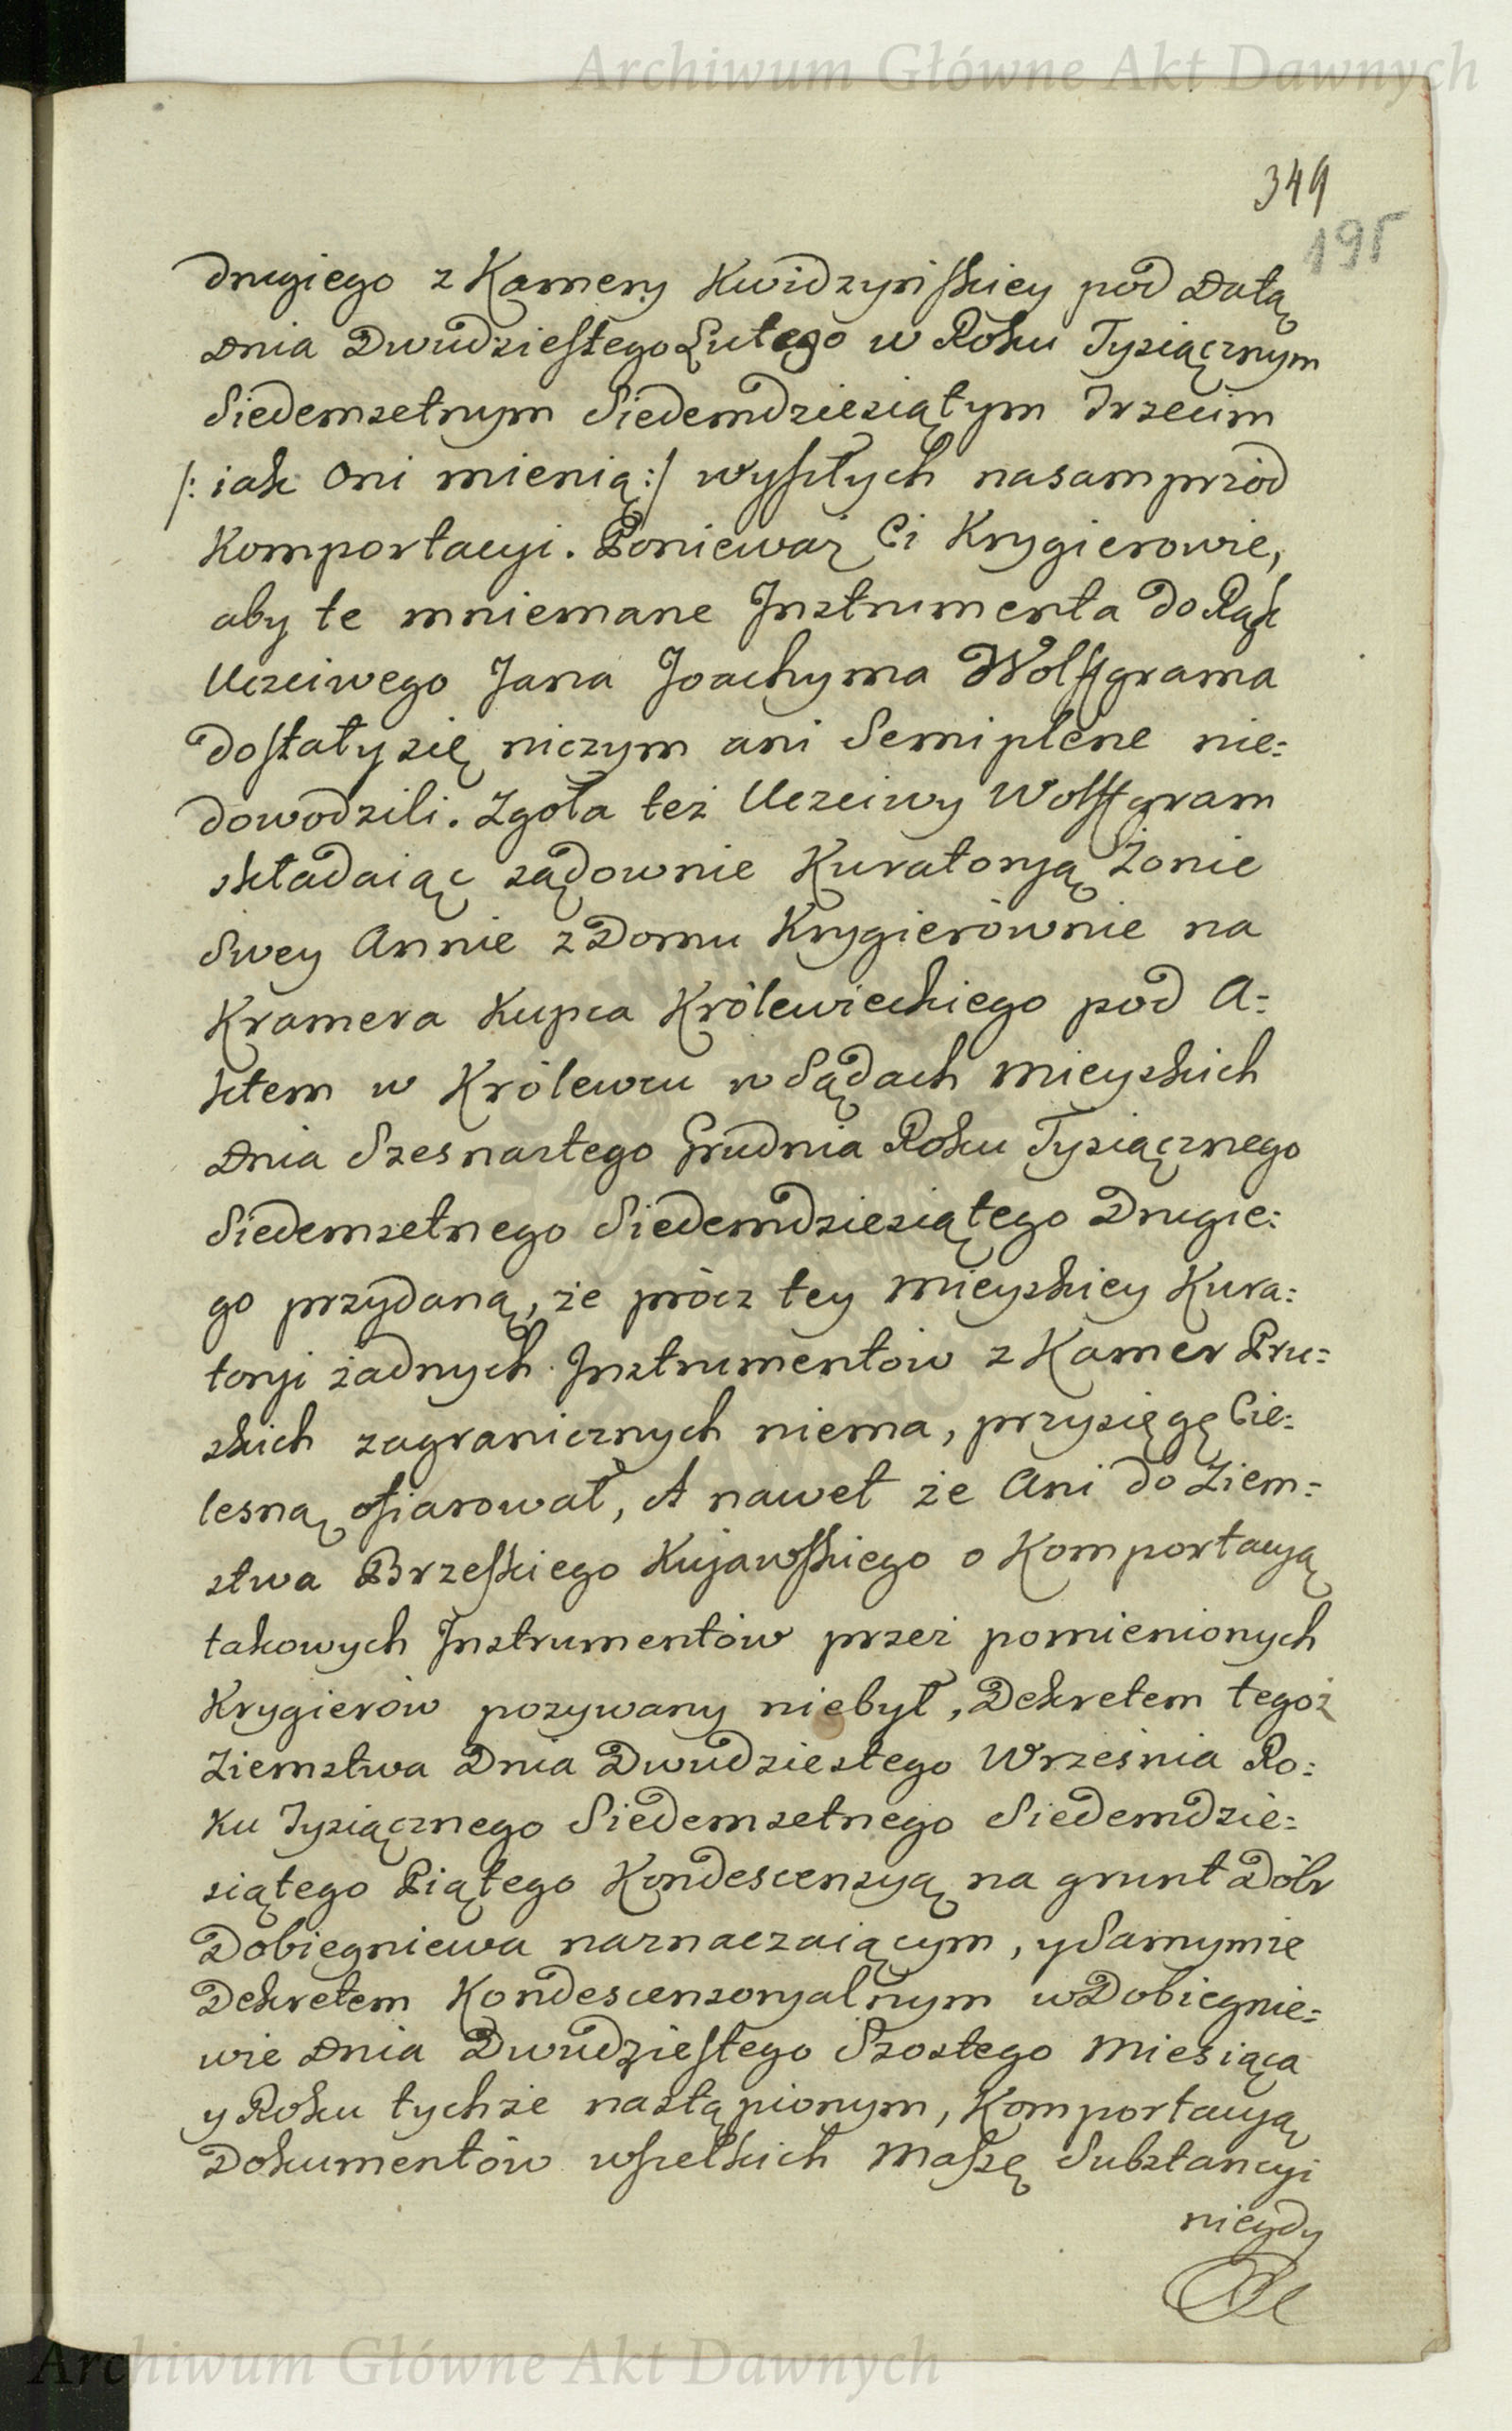 Archiwum Główne Akt Dawnych
349
195
drugiego z Kamery Kwidzyńskiey pod Datą
Dnia Dwudziestego Lutego w Roku Tysiącznym
Siedemsetnym Siedemdziesiątym Trzecim
/: iak Oni mienią :/ wyszłych nasamprzód
Komportacyi. Ponieważ Ci Krygierowie,
aby te mniemane Instrumenta do Rąk
Uczciwego Jana Joachyma Wolffgrama
dostały się niczym ani Semiplene nie=
dowodzili. Zgoła też Uczciwy Wolffgram
składaiąc sądownie Kuratoryą Żonie
Swey Annie z Domu Krygierównie na
Kramera Kupca Królewieckiego pod A=
ktem w Królewcu w Sądach Mieyskich
Dnia Szesnastego Grudnia Roku Tysiącznego
Siedemsetnego Siedemdziesiątego Drugie=
go przydaną, że prócz tey Mieyskiey Kura=
toryi żadnych Instrumentów z Kamer Pru=
skich zagranicznych niema, przysięgę Cie=
lesną ofiarował, A nawet że Ani do Ziem=
stwa Brzeskiego Kujawskiego o Komportacyą
takowych Instrumentów przez pomienionych
Krygierów pozywany niebył, Dekretem tegoż
Ziemstwa Dnia Dwudziestego Września Ro=
ku Tysiącznego Siedemsetnego Siedemdzie=
siątego Piątego Kondescensyą na grunt Dóbr
Dobiegniewa naznaczaiącym, y Samymże
Dekretem Kondescensoryalnym w Dobiegnie=
wie Dnia Dwudziestego Szostego Miesiąca
y Roku tychże nastąpionym, Komportacyą
Dokumentów wszelkich Massę Substancyi
niegdy
Archiwum Główne Akt Dawnych